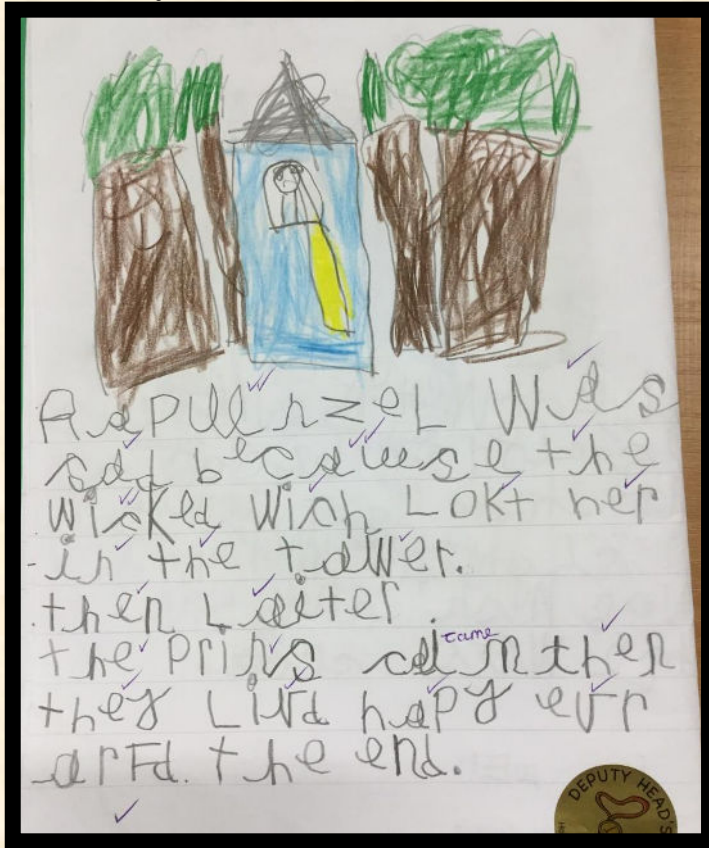 Rapuunzel Was
sad because the
wicked wich Lokt her
in the tawer.
then Laiter.
the prins came then
they Livd hapy evr
arFd. the end.
DEPUTY HEAD'S